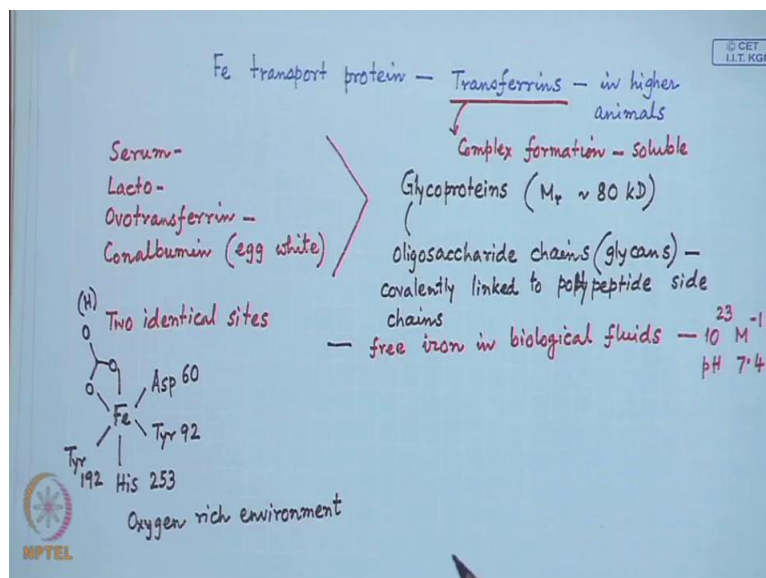 © CET
I.I.T. KGP
Fe transport protein – Transferrins – in higher
animals
Complex formation – soluble
Serum-
Lacto-
Ovotransferrin-
Conalbumin (egg white)
Glycoproteins (Mr ~ 80 kD)
Oligosaccharide chains (glycans) –
covalently linked to polypeptide side
chains
Two identical sites
– free iron in biological fluids – 10^23 M^-1
pH 7.4
(H)
O
O
O
Fe
Asp 60
Tyr 92
Tyr
192
His 253
Oxygen rich environment
NPTEL